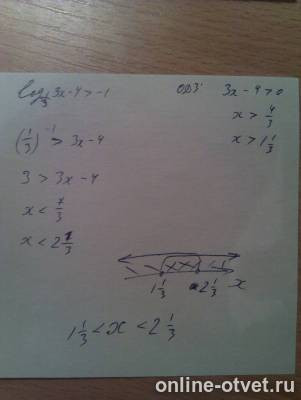 log_{1/3} 3x-4 > -1
ОДЗ: 3x-4>0
x > 4/3
x > 1 1/3
(1/3)^{-1} > 3x-4
3 > 3x-4
x < 7/3
x < 2 1/3
1 1/3 2 1/3 x
1 1/3 < x < 2 1/3
online-otvet.ru